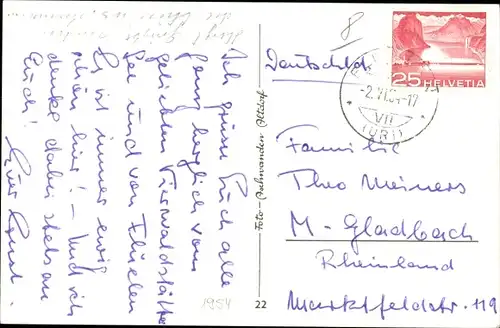 Ich grüsse Euch alle
ganz herzlich vom
geliebten Vierwaldstätter
See und von Flüelen
Es ist immer ewig
schön hier! – Und ich
denke dabei stets an
Euch!
Euer Ernst.
1954
Foto-Aschwanden Altdorf
22
8
Deutschld.
25 HELVETIA
-2.VI.54-17
VII
(URI)
Familie
Theo Meiners
M-Gladbach
Rheinland
Marktfeldstr. 119